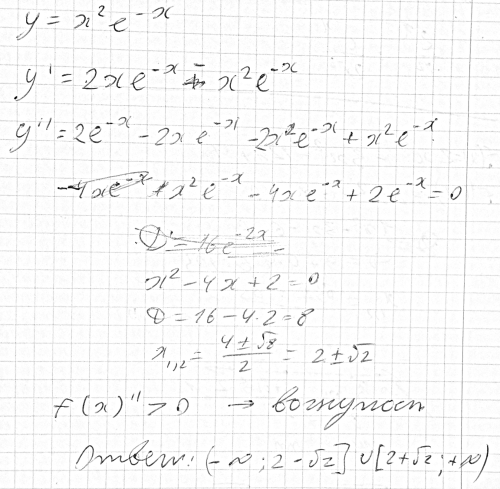 y = x² e^{-x}
y' = 2x e^{-x} - x² e^{-x}
y'' = 2e^{-x} - 2x e^{-x} - 2x e^{-x} + x² e^{-x}
x² e^{-x} - 4x e^{-x} + 2e^{-x} = 0
x² - 4x + 2 = 0
D = 16 - 4·2 = 8
x_{1,2} = (4 ± √8)/2 = 2 ± √2
f(x)'' > 0 → вогнутость
Ответ: (-∞; 2-√2] ∪ [2+√2; +∞)